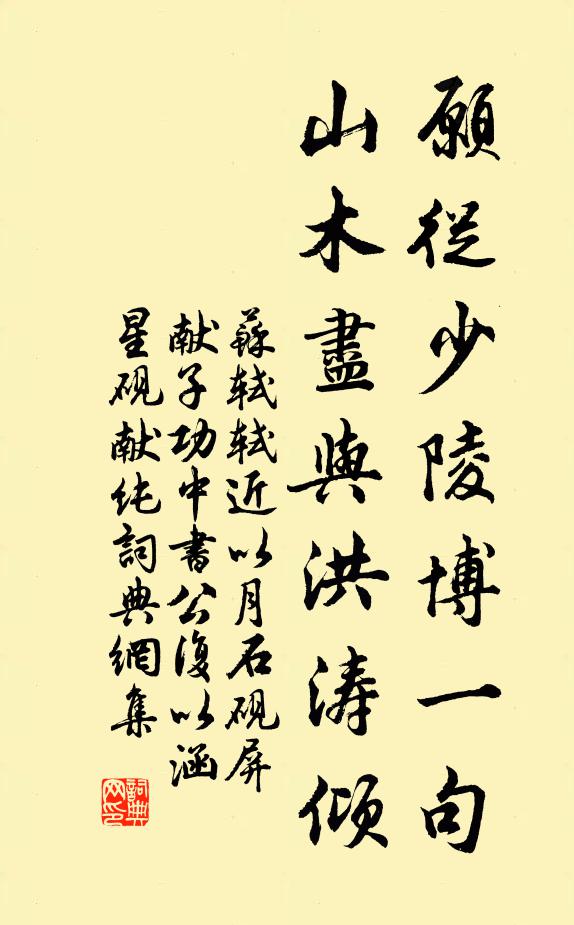 願從少陵博一句
山木盡與洪濤傾
蘇軾軾近以月石硯屏
献子功中書公復以涵
星硯献纯詞典網集
詞典網印